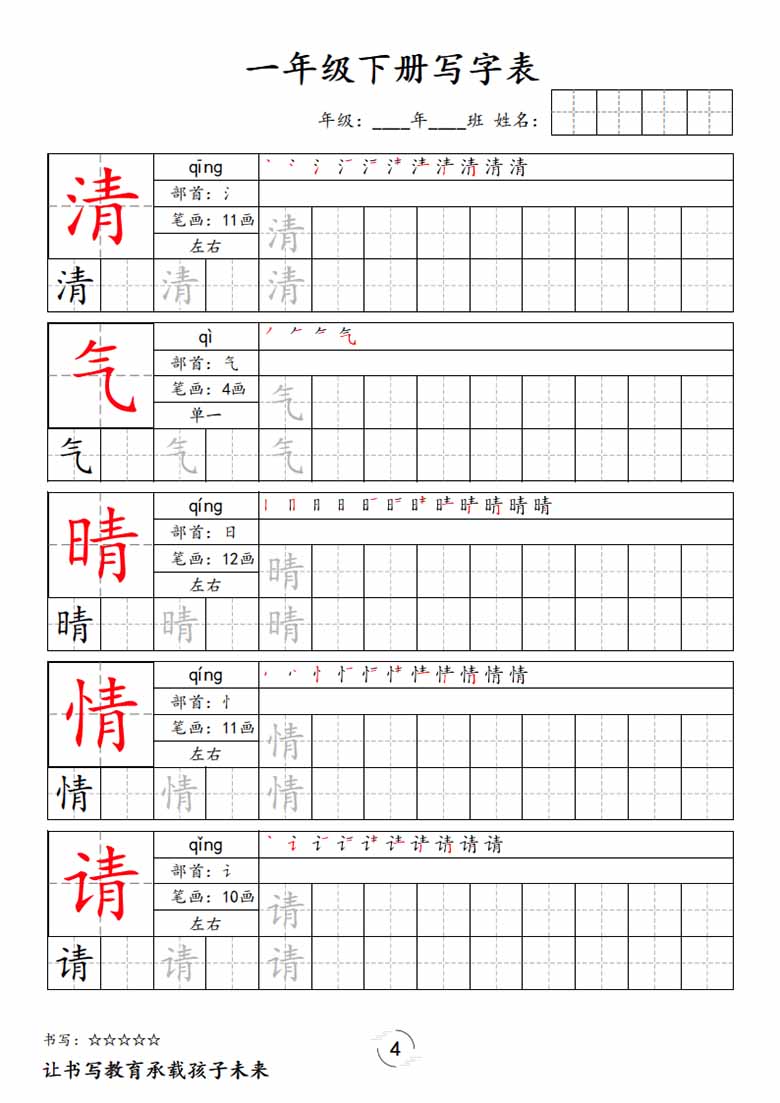 一年级下册写字表
年级：____年____班 姓名：
清 qīng
部首：氵
笔画：11画
左右
清
清 清 清
气 qì
部首：气
笔画：4画
单一
气
气 气 气
晴 qíng
部首：日
笔画：12画
左右
晴
晴 晴 晴
情 qíng
部首：忄
笔画：11画
左右
情
情 情 情
请 qǐng
部首：讠
笔画：10画
左右
请
请 请 请
书写：☆☆☆☆☆
让书写教育承载孩子未来
4